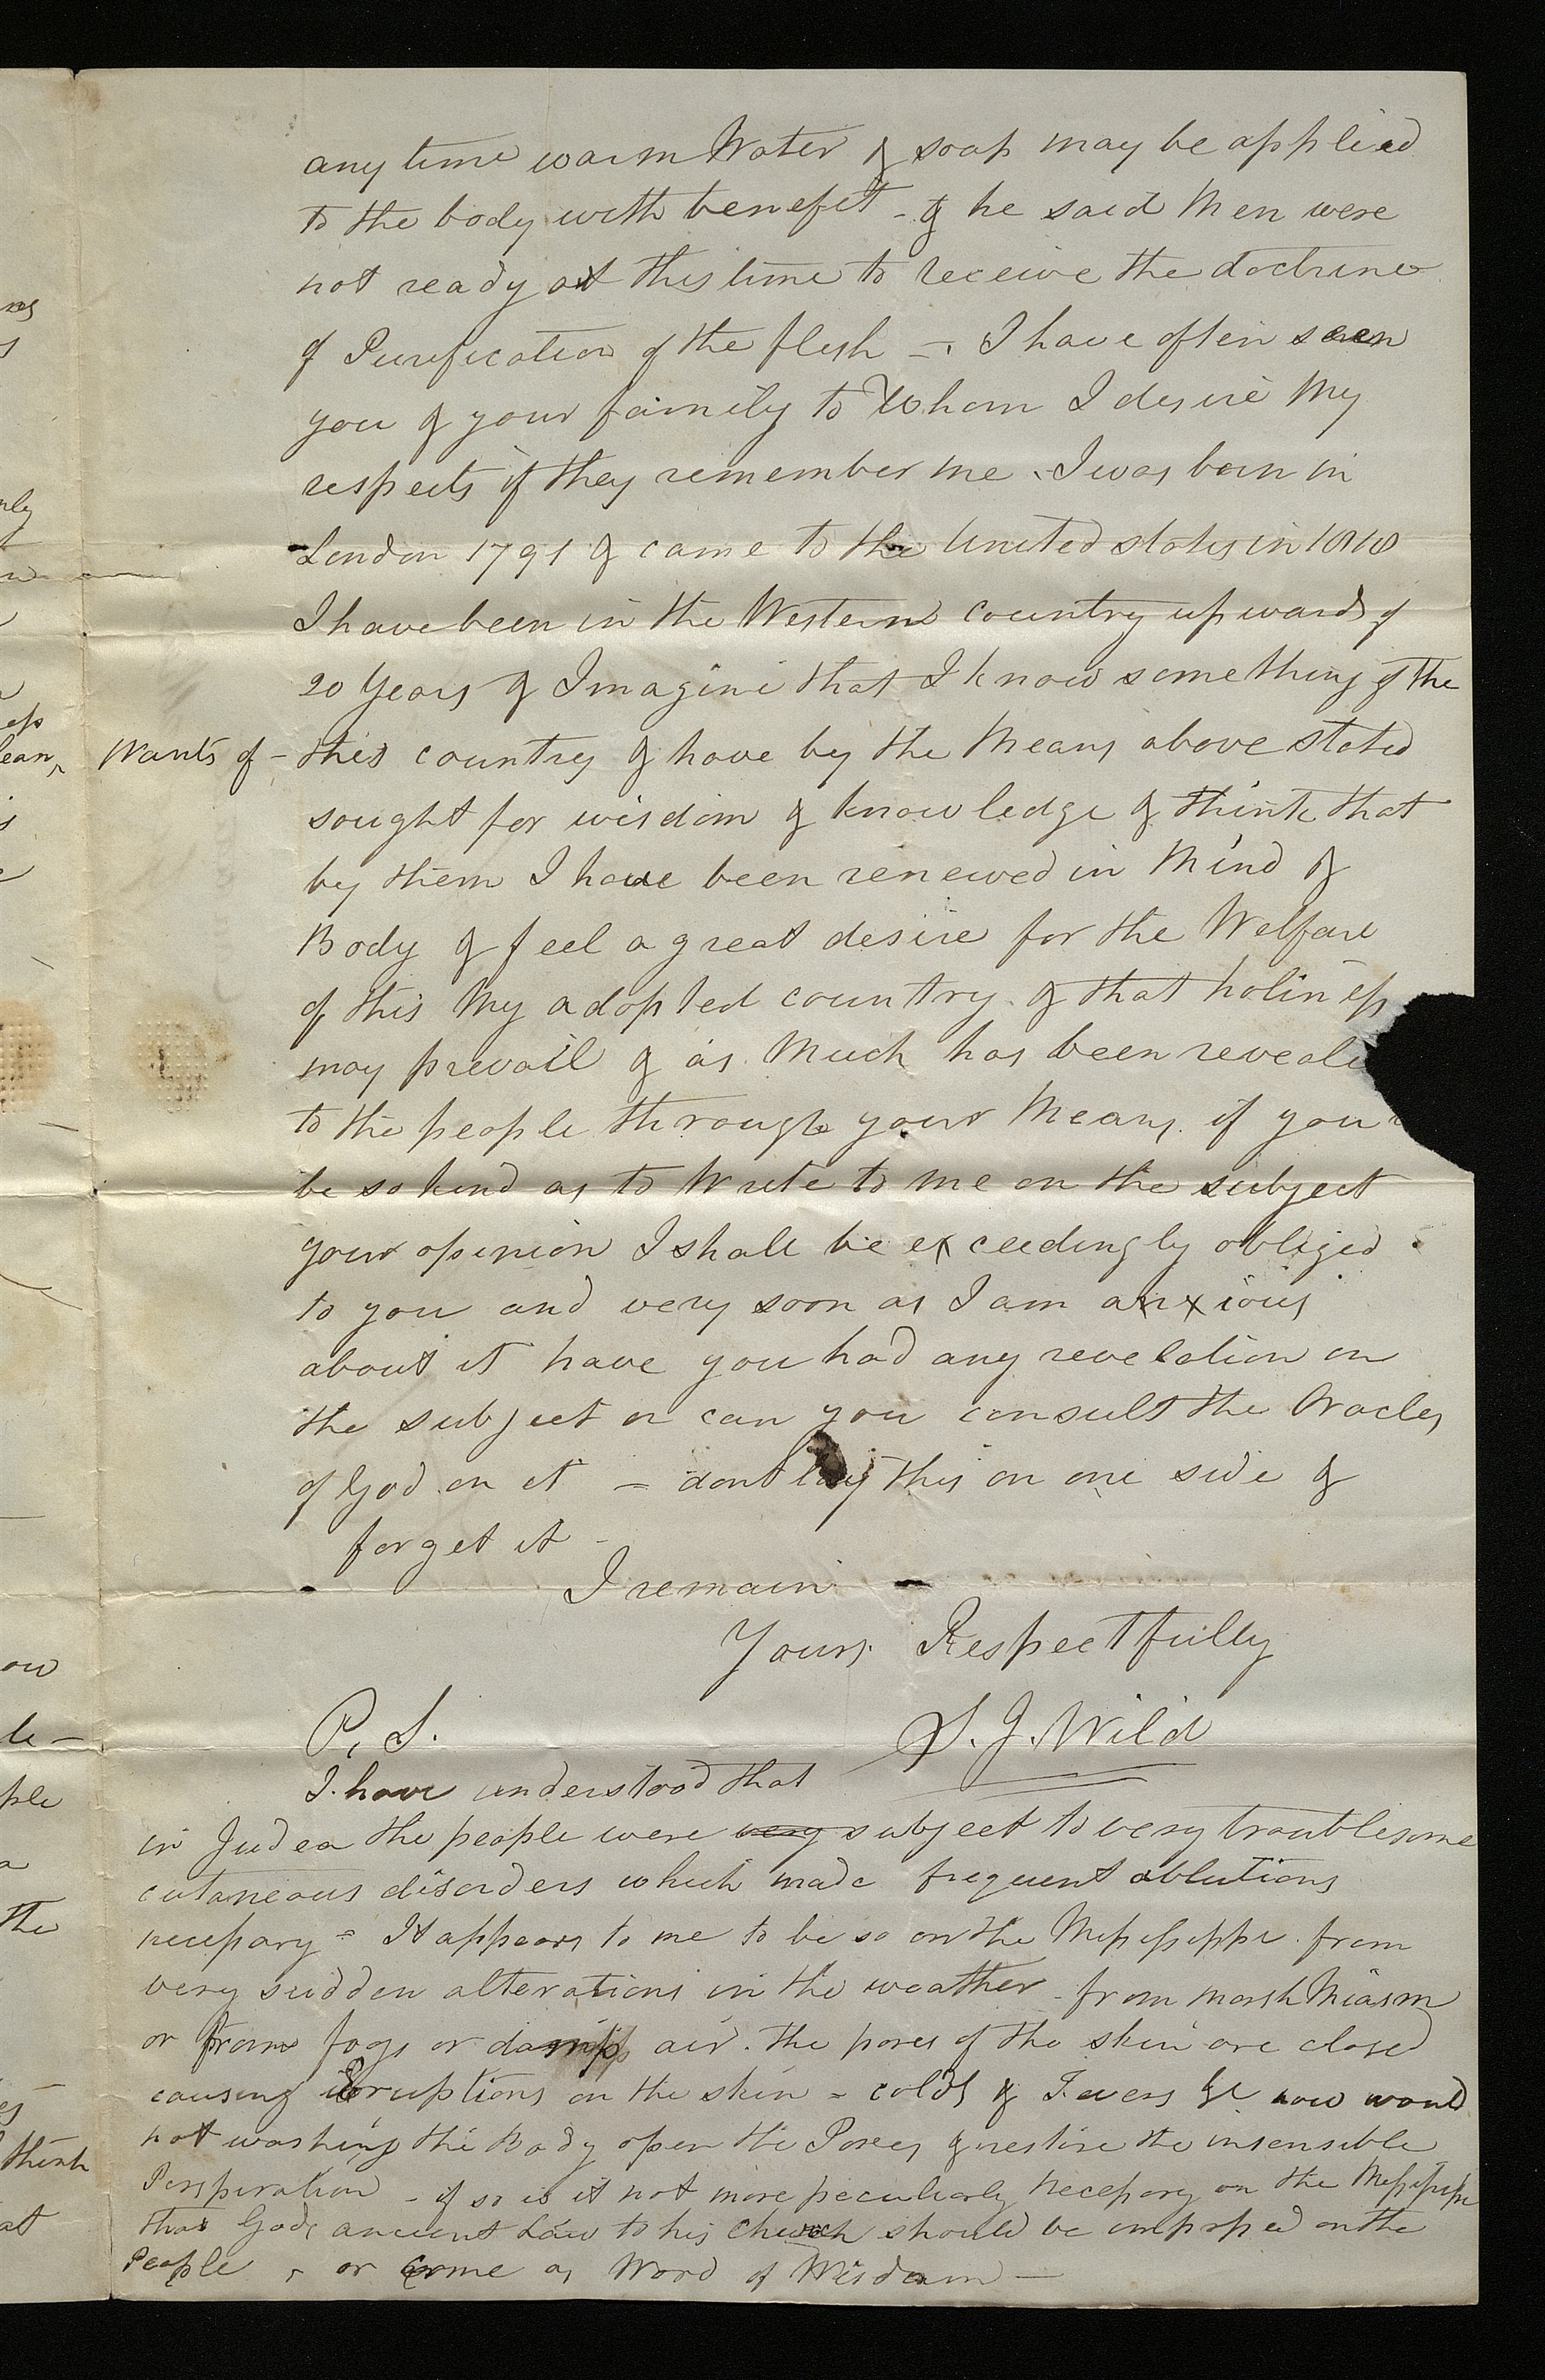 any time warm Water & soap may be applied
to the body with benefit - & he said Men were
not ready at this time to receive the doctrine
of Purification of the flesh - . I have often seen
you & your family to Whom I desire My
respects if they remember me . I was born in
London 1791 & came to the United states in 1818
I have been in the Western country upwards of
20 Years & Imagine that I know something of the
Wants of - this country & have by the Means above stated
sought for wisdom & knowledge & think that
by them I have been renewed in Mind &
Body & feel a great desire for the Welfare
of this My adopted country . & that holiness
may prevail & as Much has been reveale
to the people through your Means . if you
be so kind as to Write to me on the subject
your opinion I shall be exceedingly obliged .
to you and very soon as I am anxious
about it have you had any revelation on
the subject or can you consult the Oracles
of God on it = dont lay this on one side &
forget it -
I remain -
Yours Respectfully
S. J. Wild
P. S.
I have understood that
in Judea the people were very subject to very troublesome
cutaneous disorders which made frequent ablutions
necessary = It appears to me to be so on the Mississippi . from
very sudden alterations in the weather - from marsh Miasm
or from fogs or damp air . the pores of the skin are closed
causing Eruptions on the skin = colds & Fevers &c now would
not washing the Body open the Pores & restore the insensible
Perspiration - if so is it not more peculiarly necessary on the Mississippi
that Gods ancient Law to his church should be impressed on the
People , or come as Word of Wisdom —
nly
ess
lean,
ow
le -
ple
the
think
at